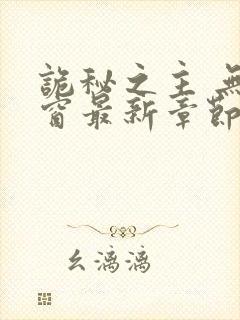 詭秘之主 無
窗最新章節
幺漓漓